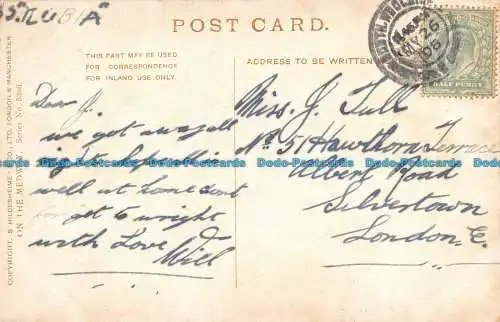 POST CARD.
THIS PART MAY BE USED
FOR CORRESPONDENCE
FOR INLAND USE ONLY.
ADDRESS TO BE WRITTEN
HALF PENNY
COPYRIGHT. S HILDESHEIMER & CO., LTD. LONDON & MANCHESTER
ON THE MEDWAY. Series No.
Dear J.
we got away all
right hope all is
well at home dont
forget to wright
with Love
Will
Miss. J. Tull
No 51 Hawthorn Terrace
Albert Road
Silvertown
London, E.
Dodo-Postcards Dodo-Postcards Dodo-Postcards Dodo-Postcards